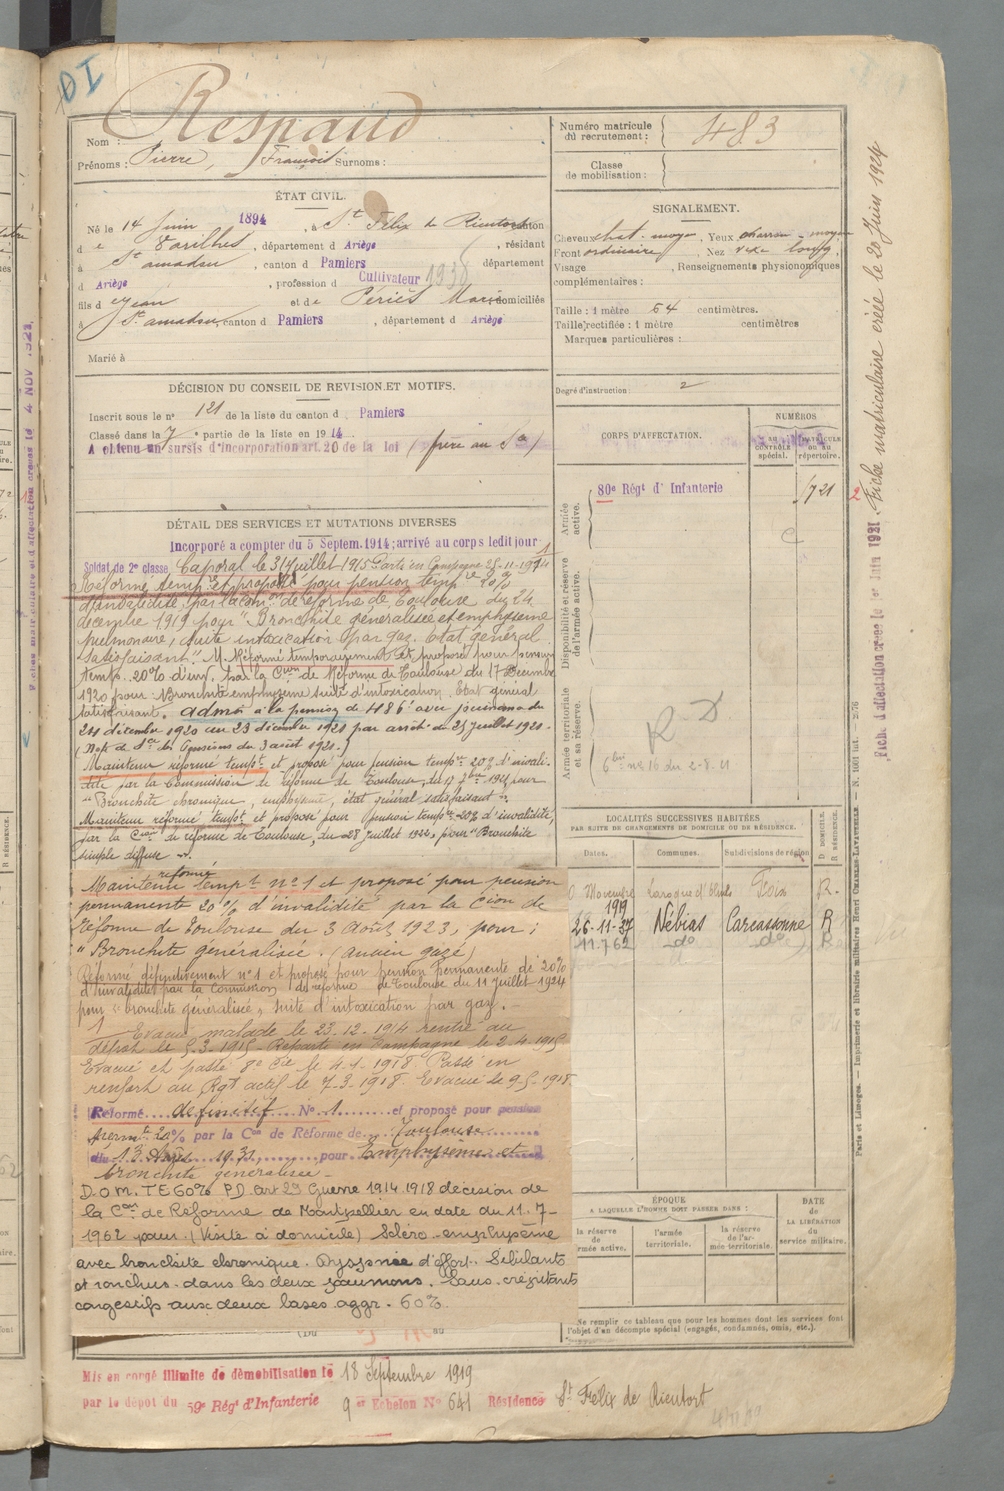 DI
Respaud
Nom :
Prénoms : Pierre, François Surnoms :
Numéro matricule du recrutement : 483
Classe de mobilisation :
ÉTAT CIVIL.
Né le 14 Juin 1894, à St Félix de Rieutort canton
d e Varilhes, département d Ariège, résidant
à St amadou, canton d Pamiers département
d Ariège, profession d Cultivateur 1938
fils d e Jean et de Periès Marie domiciliés
à St amadou, canton d Pamiers, département d Ariège
Marié à
SIGNALEMENT.
Cheveux chat. moyen, Yeux marron-moyen
Front ordinaire, Nez vexe long,
Visage , Renseignements physionomiques
complémentaires :
Taille : 1 mètre 64 centimètres.
Taille rectifiée : 1 mètre centimètres
Marques particulières :
Degré d'instruction : 2
DÉCISION DU CONSEIL DE REVISION ET MOTIFS.
Inscrit sous le n° 121 de la liste du canton d Pamiers
Classé dans la 7 e partie de la liste en 1914
A obtenu un sursis d'incorporation art. 20 de la loi (frère au Sce)
CORPS D'AFFECTATION.
NUMÉROS
AU CONTRÔLE spécial.
MATRICULE ou au répertoire.
Armée active.
80e Régt d' Infanterie
721
Disponibilité et réserve de l'armée active.
Armée territoriale et sa réserve.
R D
6 bis n° 16 du 2-8-21
DÉTAIL DES SERVICES ET MUTATIONS DIVERSES
Incorporé a compter du 5 Septem. 1914; arrivé au corps ledit jour
Soldat de 2e classe Caporal le 31 Juillet 1915 Parti en Campagne 25-11-1914
Réformé tempre et proposé pour pention tempre 20%
d'invalidité par la Comon de réforme de Toulouse du 24
decembre 1919 pour "Bronchite généralisée et emphyseme
pulmonaire, suite intoxication par gaz. Etat général
satisfaisant". M. Réformé temporairement et proposé pour pension
temp. 20% d'inv. par la Cion de Réforme de Toulouse du 17 Décembre
1920 pour: Bronchite emphyzeme suite d'intoxication. Etat général
satisfaisant. admis à la pension de 486f avec jouissance du
24 décembre 1920 au 23 décembre 1921 par arrêt du 25 Juillet 1921.
(Note de Sce des Pensions du 3 août 1921.)
Maintenu réformé tempre et proposé pour pension tempre 20% d'invali-
dité par la Commission de réforme de Toulouse, du 17 1921, pour
"Bronchite chronique, emphysème, état général satisfaisant".
Maintenu réformé tempt et proposé pour pension tempre 20% d'invalidité,
par la Cion de réforme de Toulouse, du 28 Juillet 1922, pour "Bronchite
simple diffuse".
Maintenu réformé tempt n° 1 et proposé pour pension
permanente 20% d'invalidité par la Cion de
Réforme de Toulouse du 3 Août 1923, pour :
" Bronchite généralisée. (ancien gazé)
Réformé définitivement n° 1 et proposé pour pension permanente de 20%
d'invalidité par la Commission de réforme de Toulouse du 11 Juillet 1924
pour "bronchite généralisée", suite d'intoxication par gaz. -
1 Evacué malade le 23-12-1914 rentré au
dépôt le 5-3-1915 Reparti en Campagne le 2-4-1915
Evacué et passé 8e Cie le 4-1-1918 Passé en
renfort au Rgt actif le 7-3-1918. Evacué le 9-5-1918
Réformé définitif N° 1 et proposé pour pension
permte 20% par la Cion de Réforme de Toulouse
du 13 1932, pour Emphysème et
bronchite généralisée -
D.O.M. T E 60% P.D. art 29 Guerre 1914-1918 décision de
la Con de Réforme de Montpellier en date du 11-7-
1962 pour (Visite à domicile) Scléro-emphysème
avec bronchite chronique. Dyspnée d'effort. Sibilants
et ronchus dans les deux poumons. Sous-crépitants
congestifs aux deux bases aggr. 60%.
LOCALITÉS SUCCESSIVES HABITÉES
PAR SUITE DE CHANGEMENTS DE DOMICILE OU DE RÉSIDENCE.
Dates. Communes. Subdivisions de région D. DOMICILE. R. RÉSIDENCE.
Novembre 1919 Laroque d'Olmes Foix R.
26-11-37 Nébias Carcassonne R
11.7.62 do do R
ÉPOQUE
A LAQUELLE L'HOMME DOIT PASSER DANS :
DATE DE LA LIBÉRATION du service militaire.
la réserve de l'armée active.
l'armée territoriale.
la réserve de l'armée territoriale.
Ne remplir ce tableau que pour les hommes dont les services font
l'objet d'un décompte spécial (engagés, condamnés, omis, etc.).
(Du au
Mis en congé illimité de démobilisation le 18 Septembre 1919
par le dépôt du 59e Régt d'Infanterie 9e Echelon N° 641 Résidence St Félix de Rieutort
Fiche d'affectation créée le 1er Juin 1921. Fiche matriculaire créée le 20 Juin 1924
Paris et Limoges. — Imprimerie et librairie militaires Henri CHARLES-LAVAUZELLE.